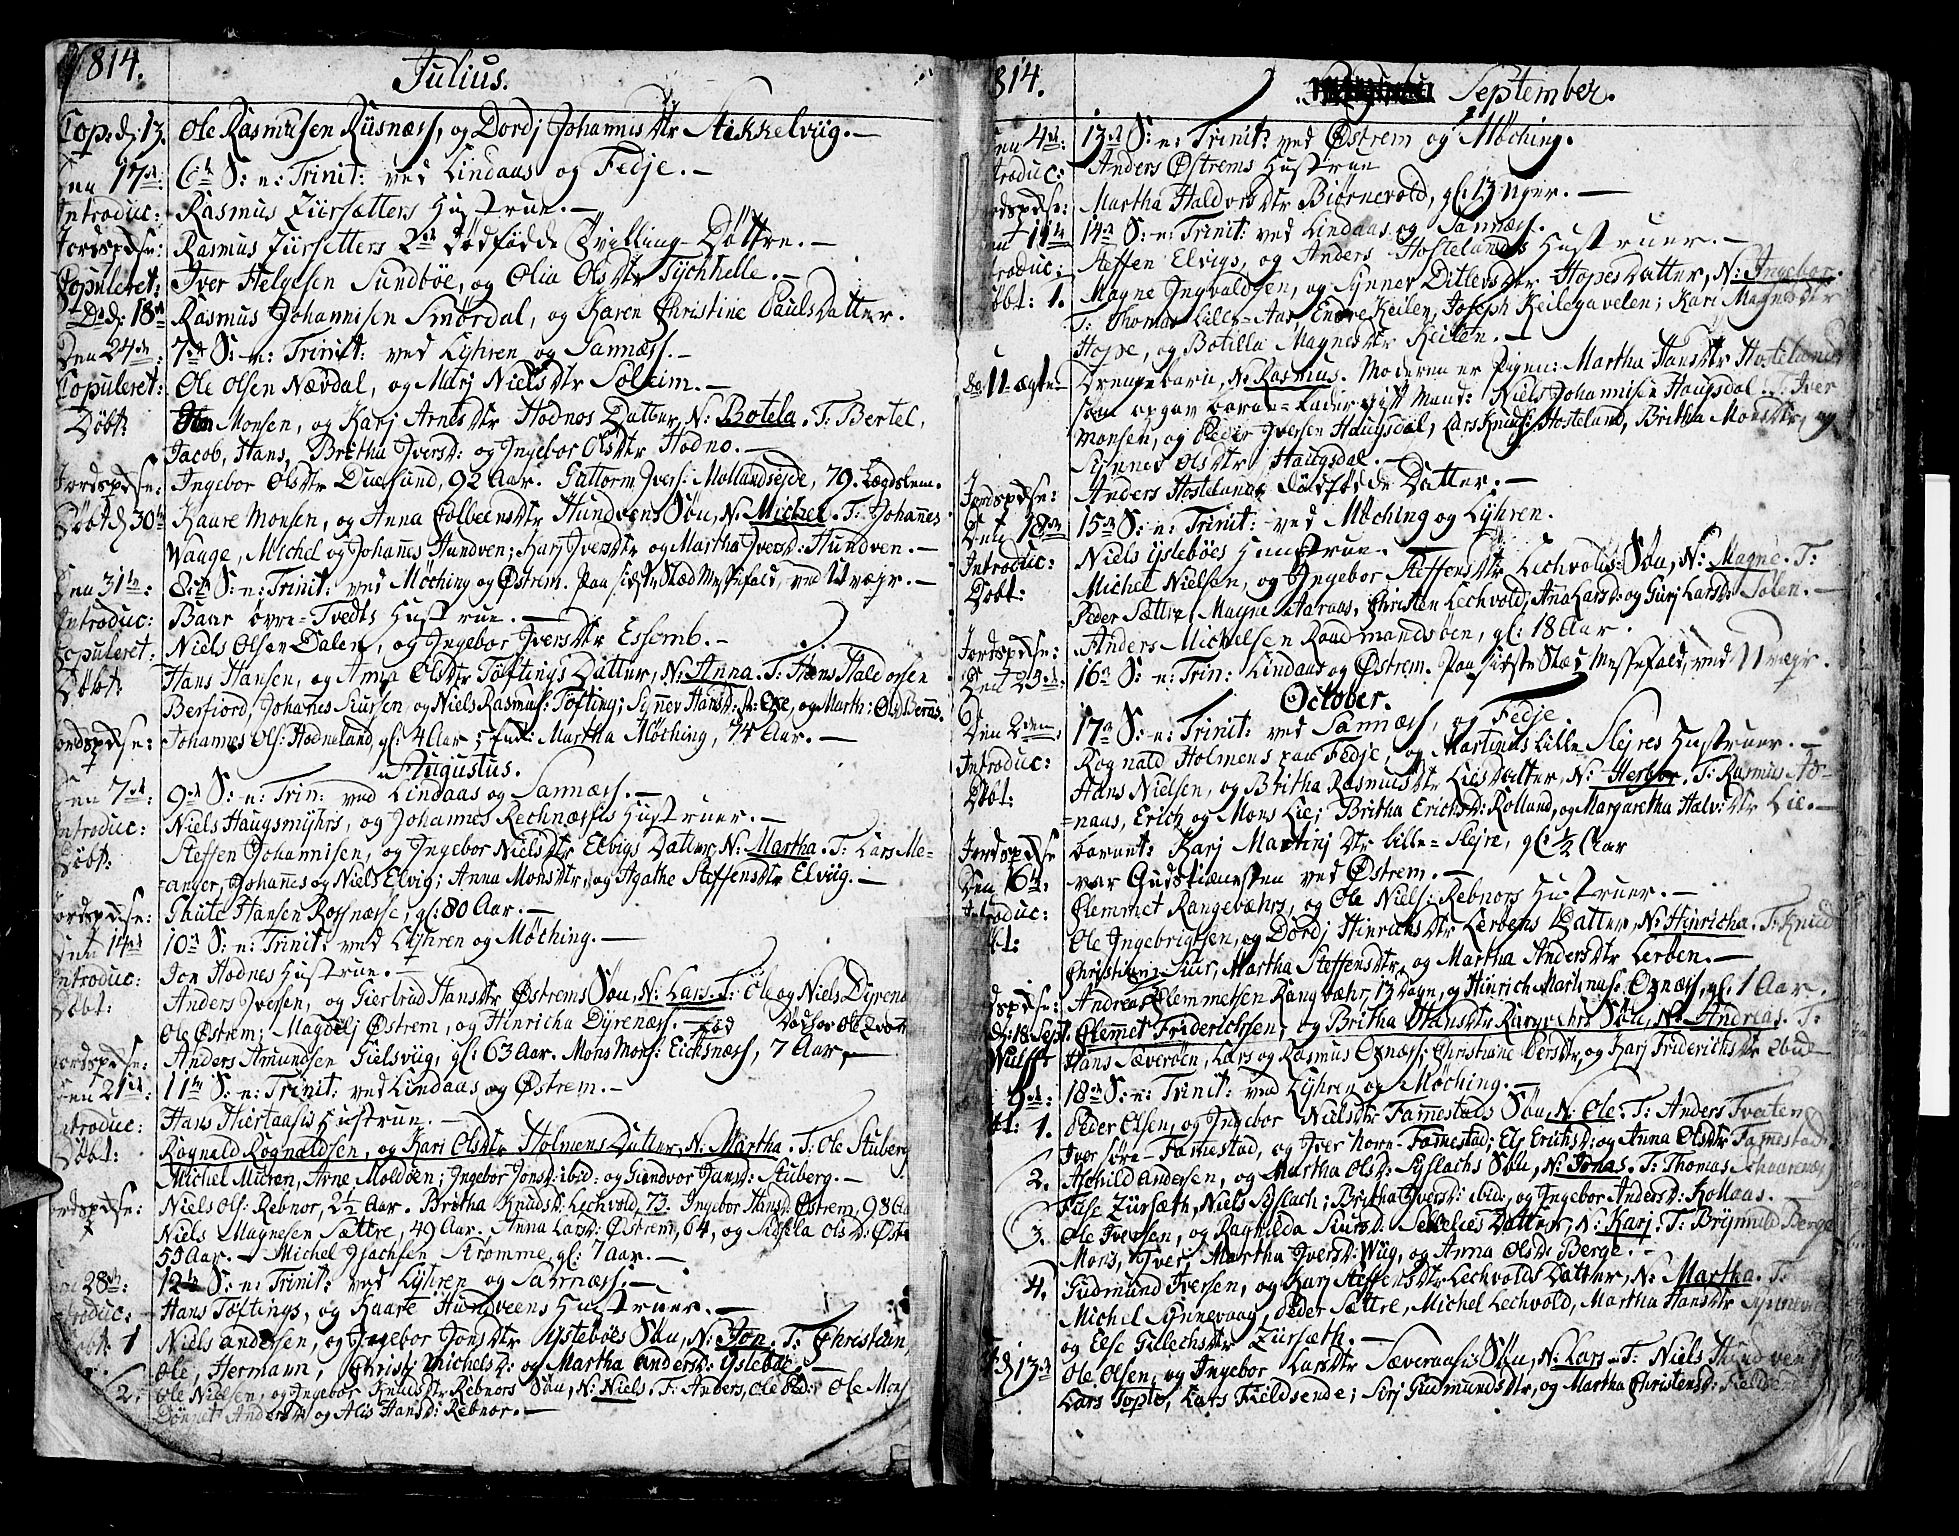 1814. Julius.
Cop: d: 13. Ole Rasmusen Risnæss, og Dordj Johannisdtr Stikkelviig. —
Den 17de: 6te S: n: Trinit: ved Lindaas og Fedje. —
Introduc: Rasmus Ziirsætters Hustrue. —
Jordspdse: Rasmus Ziirsetters 2de dødfødde Tvilling-Døttre. —
Copuleret: Iver Helgesen Sundbøe, og Olia Olsdtr Tychhelle. —
D: d: 18de Rasmus Johannisen Smørdal, og Karen Christine Pauls Datter.
Den 24de: 7de S: n: Trinit: ved Lyhren og Sannæss. —
Copuleret: Ole Olsen Nævdal, og Marj Nielsdtr Solheim. —
Døbt: Monsen, og Karj Arnesdtr Hodnos Datter, N: Botela. T: Bertel,
Jacob, Hans, Britha Iversd: og Ingebor Olsdtr Hodno. —
Jordspdse: Ingebor Olsdtr Duesund, 92 Aar. Guttorm Ivers: Mollandseide, 79. Lægdslem.
Døbt d: 30te Kaare Monsen, og Anna Colbeensdtr Hundvens Søn, N: Michel. T: Johannes
Waage, Michel og Johannes Hundven; Karj Iversdtr og Martha Iversd: Hundven. —
Den 31te: 8de S: n: Trinit: ved Møching og Østrem. Paa sidste Stæd Messefald, ved Uvejr. —
Introduc: Baar øvre-Tvedts Hustrue. —
Copuleret: Niels Olsen Dalen, og Ingebor Iversdtr Essemb. —
Døbt: Hans Hansen, og Anna Olsdtr Töftings Datter, N: Anna. T: Hans Haldorsen
Berfiord, Johannes Siursen og Niels Rasmus: Töfting; Synnev Hansd: og Marth: Olsd:
Jordspdse: Johannes Ols: Hodneland, gl: 4 Aar; Martha Møching, 74 Aar. —
Augustus.
Den 7de: 9de S: n: Trin: ved Lindaas og Sannæss. —
Introduc: Niels Haugsmyhrs, og Johannes Rechnæssis Hustruer. —
Døbt: Steffen Johannisen, og Ingebor Nielsdtr Elvigs Datter, N: Martha. T: Lars Me-
anger, Johannes og Niels Elvig; Anna Monsdtr, og Agathe Steffensdtr Elviig. —
Jordspdse: Thute Hansen Rossnæsse, gl: 80 Aar. —
Den 14de 10de S: n: Trinit: ved Lyhren og Møching. —
Introduc: Jon Hodnes Hustrue. —
Døbt: Anders Iversen, og Giertrud Hansdtr Østrems Søn, N: Lars. T: Ole og Niels Dyrenæs
Ole Østrem; Magdelj Østrem, og Hinricha Dyrenæss. —
Jordspdse: Anders Amundsen Gielsviig, gl: 63 Aar. Mons Mons: Eicksnæss, 7 Aar. —
Den 21de: 11te S: n: Trinit: ved Lindaas og Østrem. —
Introduc: Hans Hiertaasis Hustrue. —
Døbt: Rognald Rognaldsen, og Kari Olsdtr Holmens Datter, N: Martha. T: Ole Stuberg
Michel Mucken, Arne Moldøen; Ingebor Jonsd: ibid: og Giendvor Jansd: Stuberg. —
Jordspdse: Niels Ols: Rebnor, 2½ Aar. Britha Knudsd: Lechvold, 73. Ingebor Hansd: Østrem, 98 Aar
Niels Magnesen Sættre, 49 Aar. Anna Larsd: Østrem, 64, og Sidsela Olsd: Østre
55 Aar. — Michel Isachsen Strømme, gl: 7 Aar. —
28de: 12te S: n: Trinit: ved Lyhren og Sannæss. —
Introduc: Hans Töftings, og Kaare Hundveens Hustruer. —
Døbt: 1 Niels Andersen, og Ingebor Jonsdtr Yslebøes Søn, N: Jon. T: Christian,
Ole, Hermann, Christj Michelsd: og Martha Andersd: Yslebøe. —
2. Ole Nielsen, og Ingebor Knudsdtr Rebnors Søn, N: Niels. T: Anders, Ole Ols: Ole Mons
Andersd: og Alis Hansd: Rebnor. —
1814. September.
Den 4de: 13de S: n: Trinit: ved Østrem og Møching.
Introduc: Anders Østrems Hustrue
Jordspdse: Martha Haldvorsdtr Biørnevold, gl: 13 Uger. —
Den 11te 14de S: n: Trinit: ved Lindaas og Sannæss.
Introduc: Steffen Elvigs, og Anders Hostelands Hustruer. —
Døbt: 1. Magne Ingvaldsen, og Synnev Ditlevsdtr Hopes Datter, N: Ingebor.
T: Thomas Lille-Aas, Endre Keilen, Joseph Keilegavelen; Kari Magnesdtr
Hope, og Botilla Magnesdtr Keilen. —
Drengebarn, N: Rasmus. Moderen er Pigen: Martha Hansdtr Hosteland
som opgav barne-Fader gift Mand: Niels Johannisen Haugsdal. T: Iver
Monsen, og Peder Iversen Haugsdal, Lars Knuds: Hosteland, Britha Monsdtr, og
Synnev Olsdtr Haugsdal. —
Jordspdse: Anders Hostelands dødfødde Datter. —
Den 18de 15de S: n: Trinit: ved Møching og Lyhren.
Introduc: Niels Yslebøes Hustrue.
Døbt: Michel Nielsen, og Ingebor Steffensdtr Lechvolds Søn, N: Magne. T:
Peder Sættre, Magne Aaraas, Christen Lechvold; Anna Larsd: og Gurj Larsd: Solen. —
Jordspdse: Anders Michelsen Raadmandsøen, gl: 18 Aar.
Den 25de: 16de S: n: Trin: Lindaas og Østrem. Paa sidste Stæd Messefald, ved Uvejr.
October.
Den 2den: 17de S: n: Trinit: ved Sannæss, og Fedje.
Introduc: Rognald Holmens paa Fedje, og Martinus Lille Slejres Hustruer. —
Døbt: Hans Nielsen, og Britha Rasmusdtr Lies Datter, N: Herbor. T: Rasmus Aar-
naas, Erich og Mons Lie; Britha Erichsd: Kolland, og Margaretha Halvsdtr Lie. —
Jordspdse barnet: Karj Martinj dtr Lille-Slejre, gl: ½ Aar
Den 6te: var Gudstienesten ved Østrem. —
Introduc: Clemmet Rangevæhrs, og Ole Niels: Rebnors Hustruer. —
Døbt: Ole Ingebrigtsen, og Dordj Hinrichsdtr Lerbens Datter, N: Hinricha. T: Knud
Christian Siur, Martha Steffensdtr, og Martha Andersdtr Lerben. —
Jordspdse: Andreas Clemmetsen Rangvæhr, 13 Dage, og Hinrich Martinus: Oxnæss, gl: 1 Aar.
d: 18 Sept. Clemet Friderichsen, og Britha Hansdtr Søn, N: Andreas. T:
Hans Sæverøen, Lars og Rasmus Oxnæss; Christiane Persdtr, og Karj Friderichsdtr ibid
9de: 18de S: n: Trinit: ved Lyhren og Møching. —
Døbt: 1. Peder Olsen, og Ingebor Nielsdtr Fammestads Søn, N: Ole. T: Anders Tvaten
Iver søre-Fammestad, og Iver Nore-Famestad; Els Erichsd: og Anna Olsdtr Famestad.
2. Aschild Andersen, og Martha Olsd: Syslachs Søn, N: Jonas. T: Thomas
Zürsæth, Niels Syslach; Britha Iversd: ibid:, og Ingebor Andersd: Kollaas.
3. Ole Iversen, og Ragnilda Siursd: Datter, N: Karj. T: Brynnild Berge
Mons, Iver, Martha Iversd: Wiig, og Anna Olsd: Berge. —
4. Gudmund Iversen, og Karj Steffensdtr Lechvolds Datter, N: Martha. T:
Michel Synnevaag, Peder Sættre, Michel Lechvold, Martha Hansdtr Synnevaag
og Else Gulechsdtr Zürsæth. —
d: 13de Ole Olsen, og Ingebor Larsdtr Sæveraasis Søn, N: Lars. T: Niels Hundven
Lars Topte, Lars Fieldsende; Sirj Gudmundsdtr, og Martha Christensd: Fieldsend